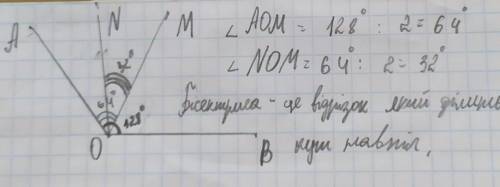 N
A
M
∠ AOM = 128° : 2 = 64°
32°
∠ NOM = 64° : 2 = 32°
64°
128°
Бісектриса - це відрізок який ділить
O
B
кут навпіл.